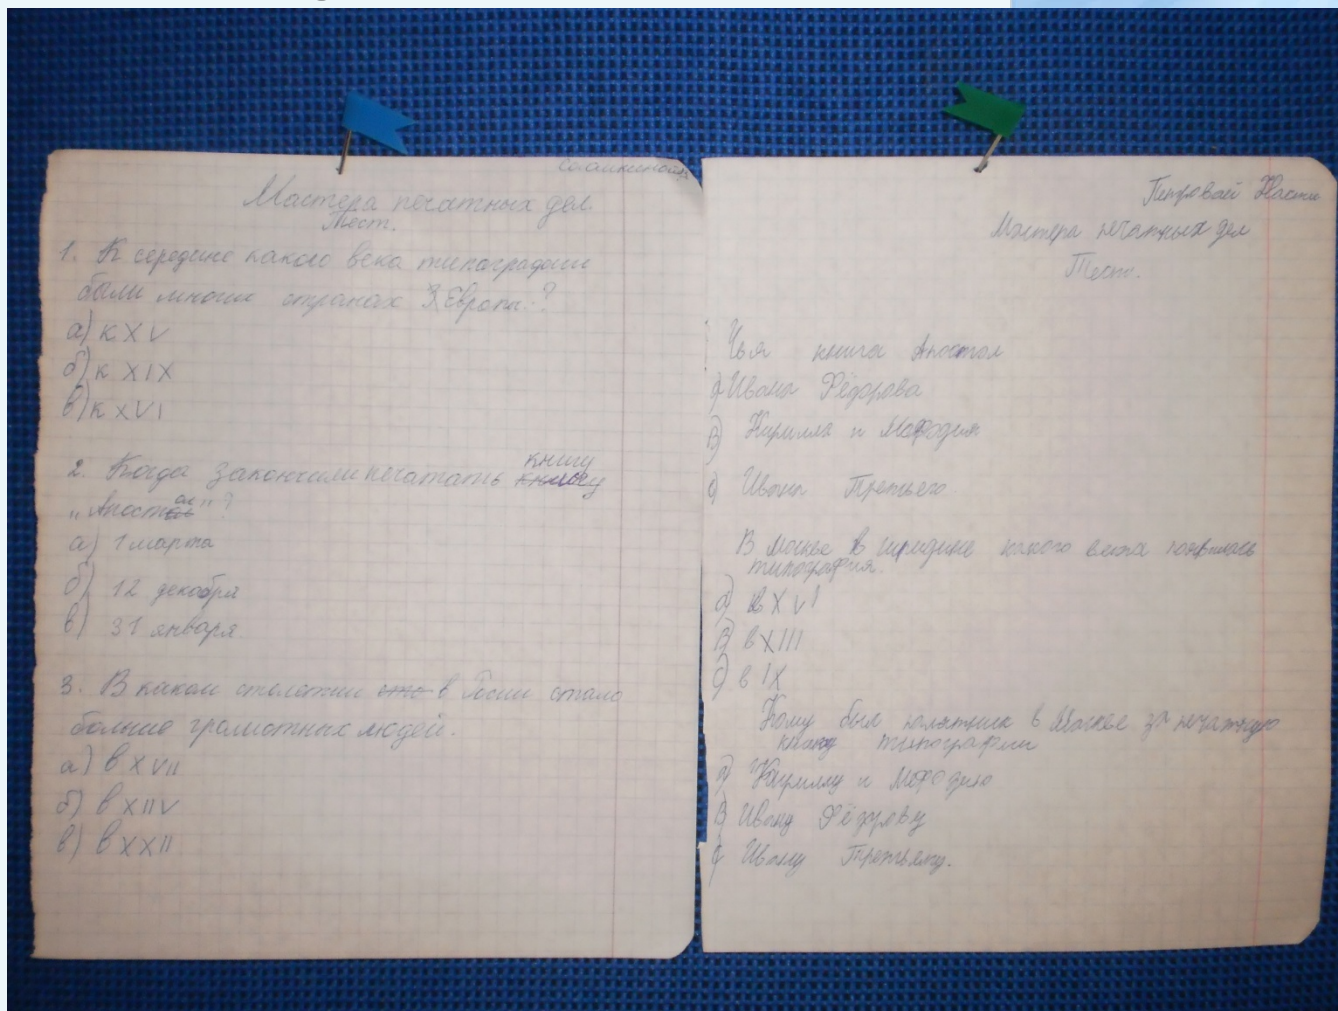 Мастера печатных дел
Тест.
1. К середине какого века типографии
были многих странах З Европы.?
а) к XV
б) к XIX
в) к XVI
2. Когда закончили печатать книгу книгу
"Апостол"?
а) 1 марта
б) 12 декабря
в) 31 января.
3. В каком столетии в Росии стало
больше грамотных людей.
а) в XVII
б) в XIIV
в) в XXII
Петровой Насти
Мастера печатных дел
Тест.
Чья книга Апостол
а) Ивана Фёдорова
В) Кирилла и Мефодия
с) Ивана Третьего
В Москве в середине какого века появилась
типография.
а) в XVI
В) в XIII
с) в IX
Кому был памятник в Москве за печатную
типографии
а) Кириллу и Мефодию
В) Ивану Фёдорову
с) Ивану Третьему.